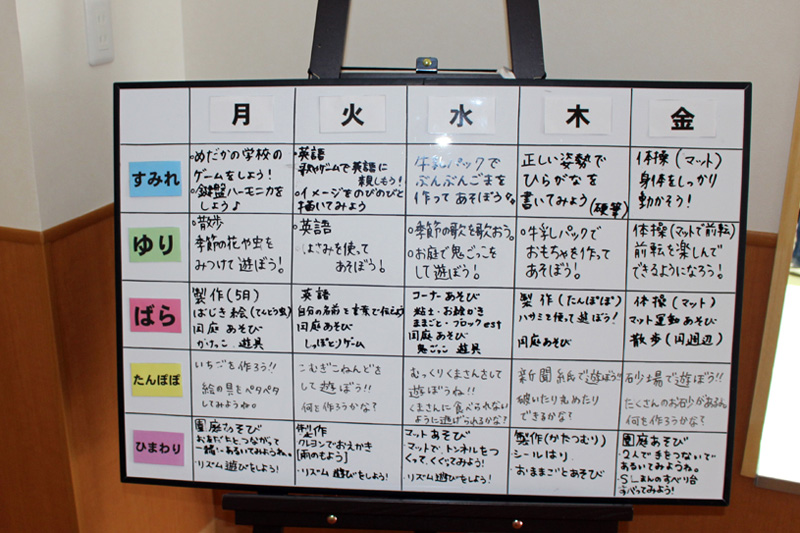 月 火 水 木 金
すみれ
○めだかの学校の
ゲームをしよう!
○鍵盤ハーモニカを
しよう♪
○英語
歌やゲームで英語に
親しもう!
○イメージをのびのびと
描いてみよう
牛乳パックで
ぶんぶんごまを
作ってあそぼうタ。
正しい姿勢で
ひらがなを
書いてみよう(硬筆)
体操(マット)
身体をしっかり
動かそう!
ゆり
○散歩
季節の花や虫を
みつけて遊ぼう!
○英語
はさみを使って
あそぼう!
○季節の歌を歌おう。
○お庭で鬼ごっこを
して遊ぼう!
○牛乳パックで
おもちゃを作って
あそぼう!
体操(マットで前転)
前転を楽しんで
できるようになろう!
ばら
製作(5日)
はじき絵(てんとう虫)
園庭あそび
かけっこ 遊具
英語
自分の名前を言葉で伝えよう
園庭あそび
しっぽとりゲーム
コーナーあそび
粘土・お絵かき
ままごと・ブロックest
園庭あそび
鬼ごっこ 遊具
製作(たんぽぽ)
ハサミを使って遊ぼう!
園庭あそび
体操(マット)
マット運動あそび
散歩(園周辺)
たんぽぽ
いちごを作ろう!!
絵の具をペタペタ
してみようね。
こむぎこねんどを
して遊ぼう!!
何を作ろうかな?
むっくりくまさんをして
遊ぼうね!!
くまさんに食べられない
ように逃げられるかな?
新聞紙で遊ぼう!!
破いたり丸めたり
できるかな?
砂場で遊ぼう!!
たくさんのお砂があるね。
何を作ろうかな?
ひまわり
園庭あそび
お友だちとつながって
一緒にあるいてみようね。
・リズム遊びをしよう!
製作
クレヨンでおえかき
[雨のもよう]
・リズム遊びをしよう!
マットあそび
マットで、トンネルをつ
くって、くぐってみよう!
・リズム遊びをしよう!
製作(かたつむり)
シールはり
・おままごとあそび
園庭あそび
・2人で手をつないで
あるいてみようね。
・SLまんのすべり台
すべってみよう!